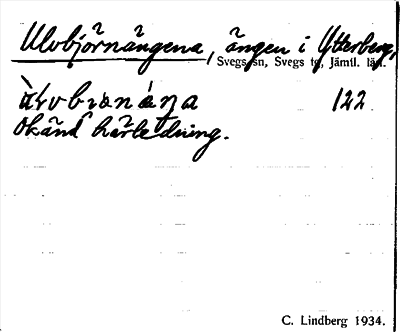 Ulvbjörnängena, ängen i Ytterberg,
Svegs sn, Svegs tg, Jämtl. län.
122
Okänd härledning.
C. Lindberg 1934.